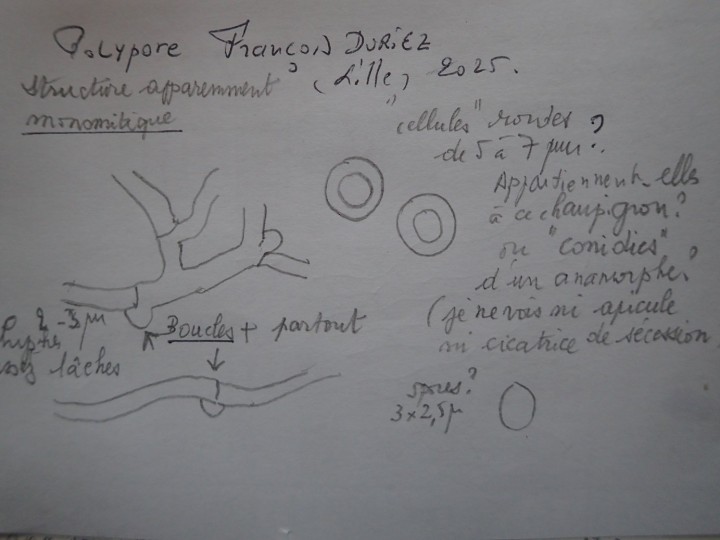 Polypore François DURIEZ
(Lille, 2025.
Structure apparemment
monomitique
"cellules" rondes ?
de 5 à 7 µm ?
Appartiennent-elles
à ce champignon ?
ou "conidies"
d'un anamorphe ?
(je ne vois ni apicule
ni cicatrice de sécession
2-3 µm
hyphes
lâches
Boucles + partout
spores ?
3 x 2,5 µ